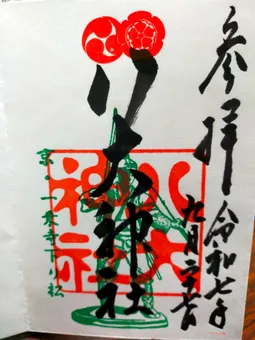 参拝
令和七年
九月二十七日
八大神社
八大
神社
京 一乗寺下り松